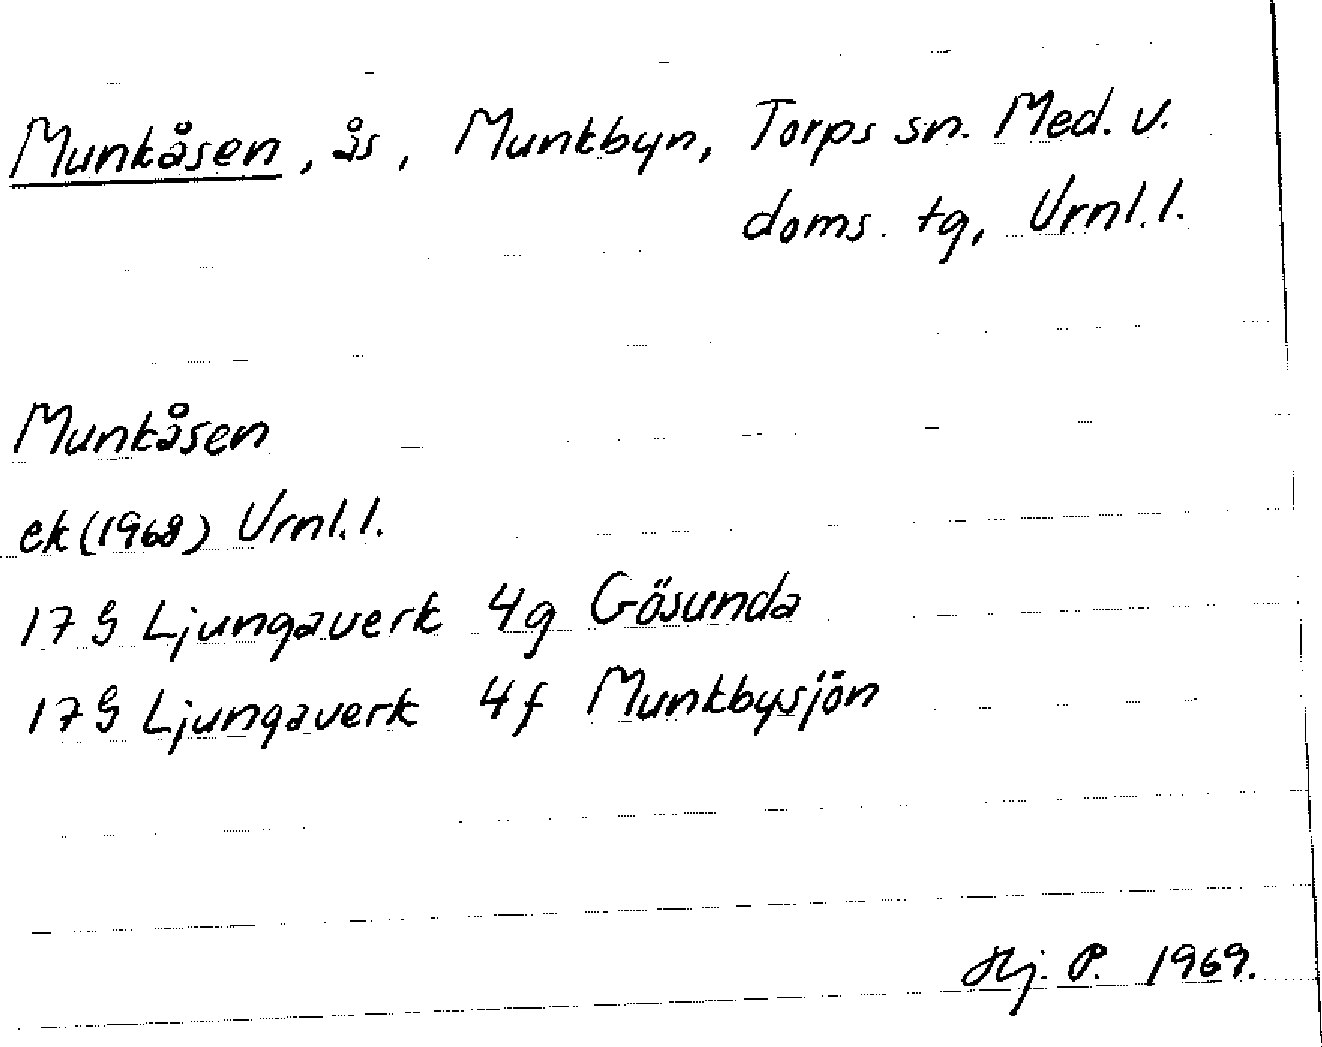 Munkåsen, ås, Munkbyn, Torps sn. Med. v.
doms. tg, Vrnl.l.
Munkåsen
ek (1968) Vrnl.l.
17 G Ljungaverk 4g Gösunda
17 G Ljungaverk 4f Munkbysjön
Hj. P. 1969.